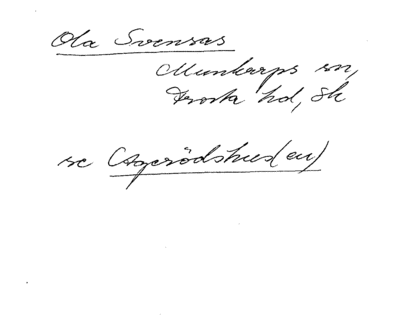 Ola Svensas
Munkarps sn,
Frosta hd, Sk
se Agerödshus(en)